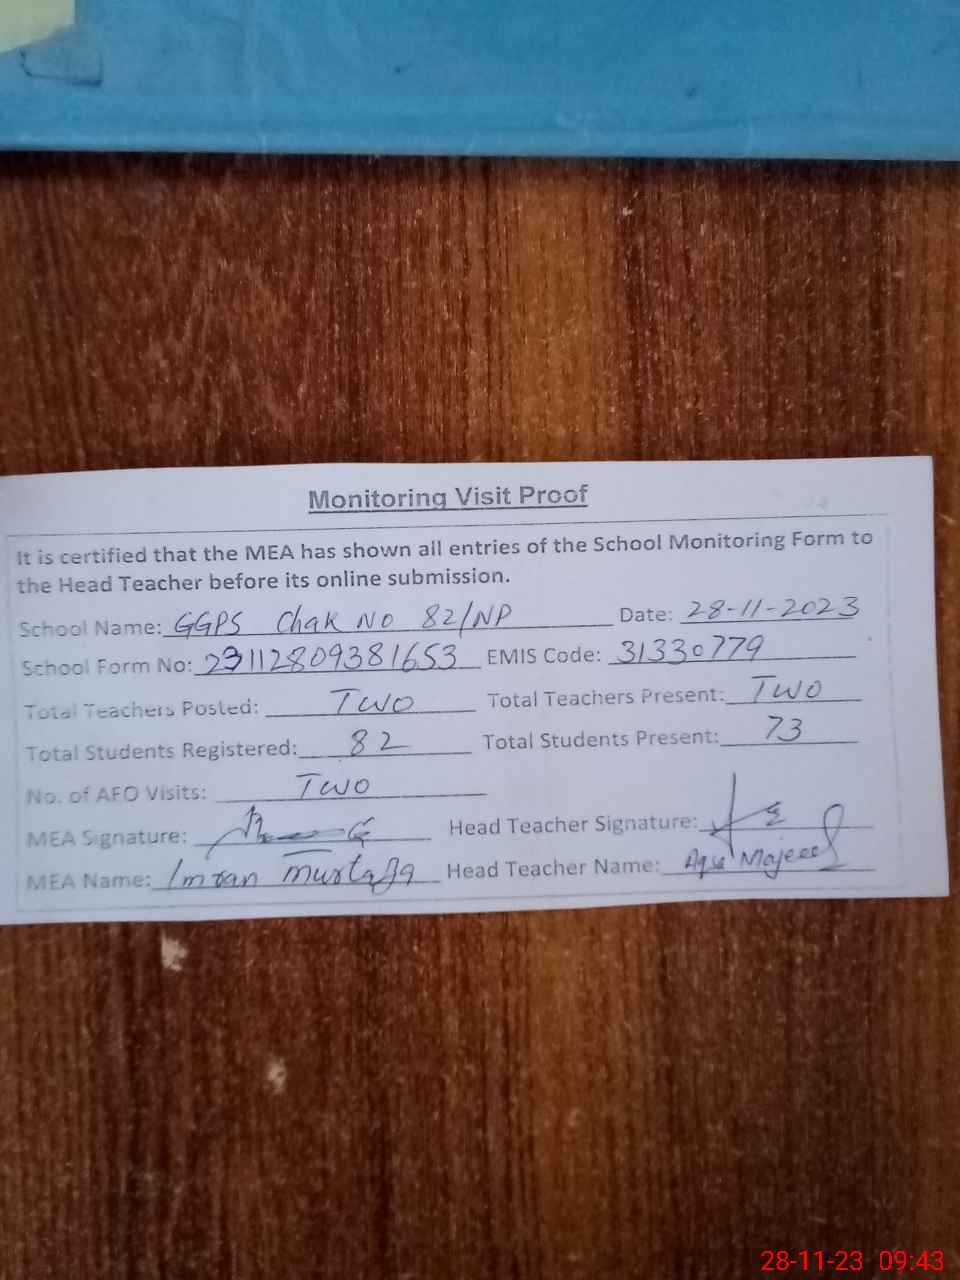 Monitoring Visit Proof
It is certified that the MEA has shown all entries of the School Monitoring Form to
the Head Teacher before its online submission.
School Name: GGPS Chak No 82/NP Date: 28-11-2023
School Form No: 23112809381653 EMIS Code: 31330779
Total Teachers Posted: Two Total Teachers Present: Two
Total Students Registered: 82 Total Students Present: 73
No. of AEO Visits: Two
MEA Signature: Head Teacher Signature:
MEA Name: Imran Mustafa Head Teacher Name: Aqsa Majeed
28-11-23 09:43